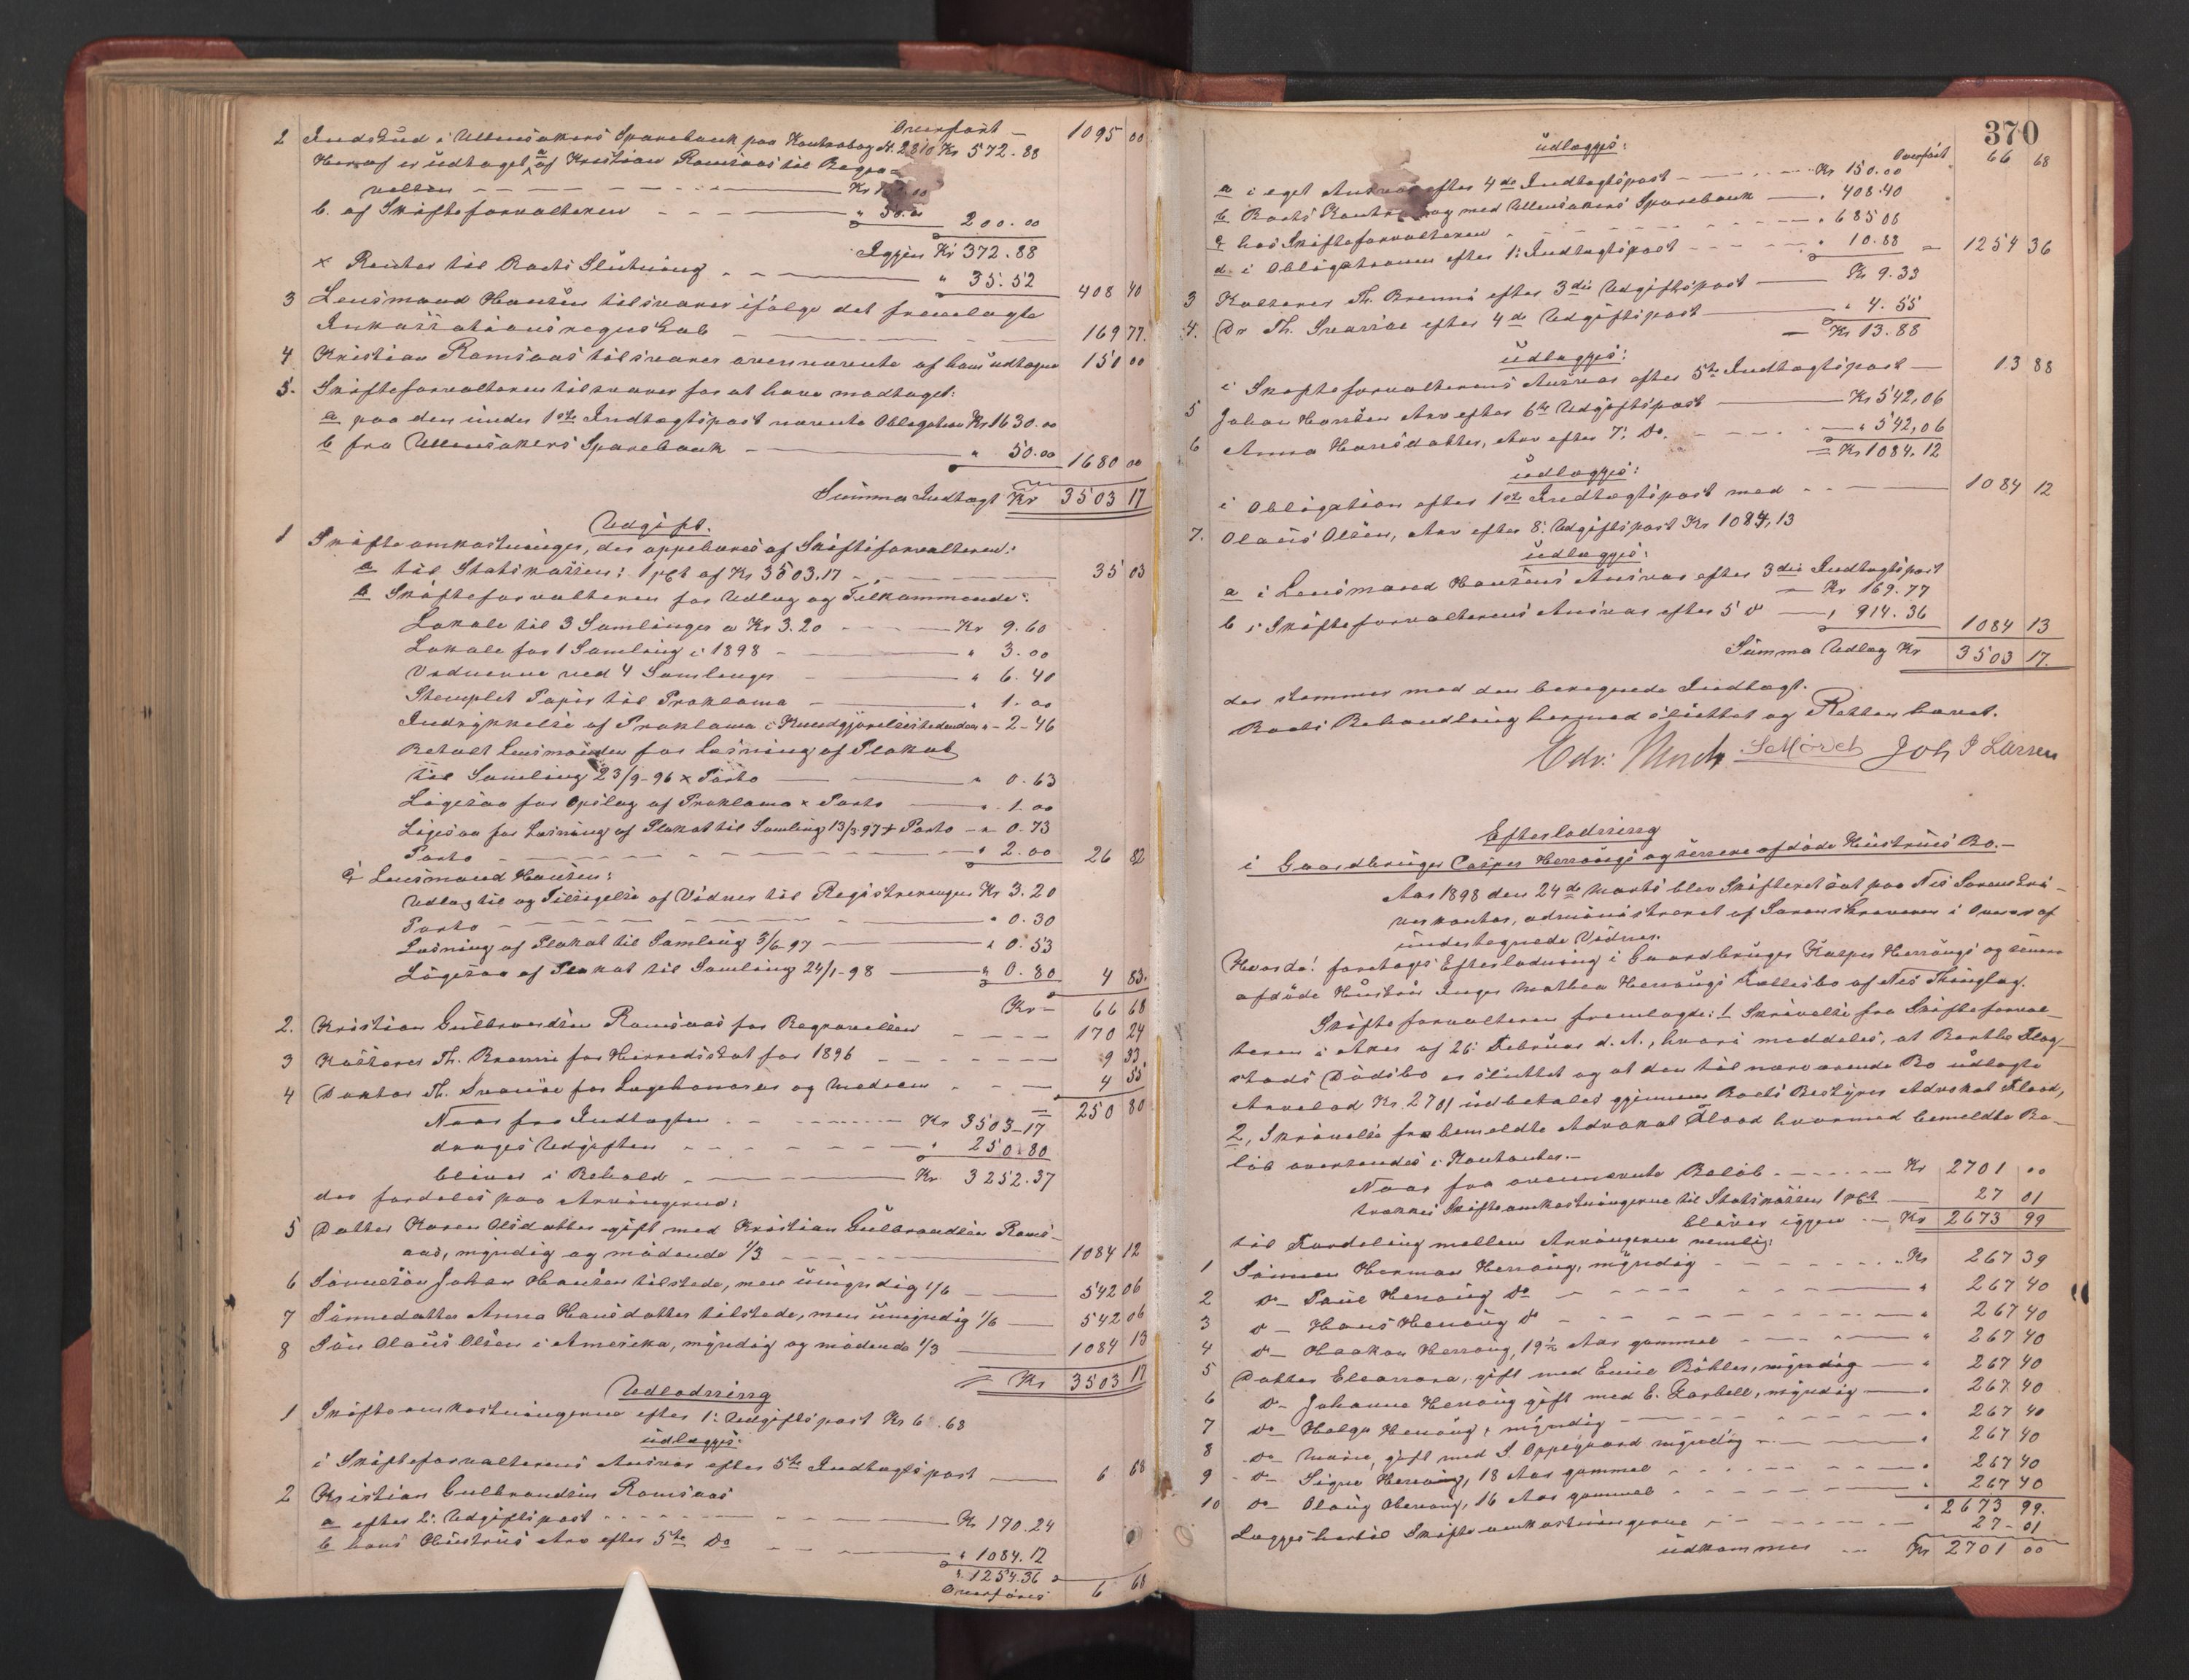 Overført – 1095 00
2 Indskud i Ullensakers Sparebank paa Kontrabog N. 2810 Kr 572.88
Heraf er udtaget a af Kristian Ramsaas til Begra=
velsen — Kr
b. af Skifteforvalteren — " 50.00 200.00
Igjen Kr 372.88
× Renter til Boets Slutning — " 35.52 408 40
3 Lensmand Hansen tilsvarer ifølge det fremlagte
Inkassationsregnskab — 169 77.
4 Kristian Ramsaas tilsvarer ovennævnte af ham udtagne 150 00
5. Skifteforvalteren tilsvarer for at have modtaget:
a paa den under 1ste Indtægtspost nævnte Obligation Kr 1630.00
b fra Ullensakers Sparebank — " 50.00 1680 00
Summa Indtægt Kr 3503 17
Udgift.
1 Skifteomkostninger, der oppebæres af Skifteforvalteren:
a til Statskassen: 1 pCt af Kr 3503.17 — 35 03
b Skifteforvalteren for Udlæg og Tilkommende:
Lokale til 3 Samlinger a Kr 3.20 — Kr 9.60
Lokale for 1 Samling i 1898 — " 3.00
Vidnerne ved 4 Samlinger — " 6.40
Stemplet Papir til Proklama — " 1.00
Indrykkelse af Proklama i Kundgjørelsestidenden " 2-46
Betalt Lensmanden for Læsning af Plakat
til Samling 23/9-96 × Porto — " 0.63
Ligesaa for Opslag af Proklama × Porto — " 1.00
Ligesaa for Læsning af Plakat til Samling 13/3 97 × Porto — " 0.73
Porto — " 2.00 26 82
c, Lensmand Hansen:
Udlæg til og Tilsigelse af Vidner til Registreringen Kr 3.20
Porto — " 0.30
Læsning af Plakat til Samling 3/6 97 — " 0.53
Ligesaa af Plakat til Samling 24/1-98 — " 0.80 4 83.
Kr 66 68
2. Kristian Gulbrandsen Ramsaas for Begravelsen — 170 24
3 Kasserer Th. Brenni for Herredsskat for 1896 — 9 33
4 Doktor Th. for Lægehonorar og Medicin — 4 55
= 250 80
Naar fra Indtægten — Kr 3503-17
drages Udgiften — " 250.80
bliver i Behold — Kr 3252.37
der fordeles paa Arvingerne:
5 Datter Karen Olsdatter gift med Kristian Gulbrandsen Rams-
aas, myndig og mødende 1/3 — 1084 12
6 Sønnesøn Johan Hansen tilstede, men umyndig 1/6 — 542 06
7 Sønnedatter Anna Hansdatter tilstede, men umyndig 1/6 — 542 06
8 Søn Olaus Olsen i Amerika, myndig og mødende 1/3 — 1084 13
= Kr 3503 17
Udlodning
1 Skifteomkostningerne efter 1: Udgiftspost Kr 6 .68
udlægges:
i Skifteforvalterens Ansvar efter 5te Indtægtspost — 6 68
2 Kristian Gulbrandsen Ramsaas
a efter 2: Udgiftspost — Kr 170.24
b hans Hustrus Arv efter 5te Do — " 1084.12
" 1254.36
Overføres 6 68
370
Overført 66 68
udlægges:
a i eget Ansvar efter 4de Indtægtspost — Kr 150.00
b Boets Kontrabog med Ullensakers Sparebank — " 408.40
c hos Skifteforvalteren — " 685 08
d i Obligationen efter 1: Indtægtspost — " 10.88 = 1254 36
3 Kasserer Th. Brenni efter 3die Udgiftspost — Kr 9.33
4. Dr Th. efter 4de Udgiftspost — " 4.55
— Kr 13.88
udlægges:
i Skifteforvalterens Ansvar efter 5te Indtægtspost — 13 88
5 Johan Hansen Arv efter 6te Udgiftspost — Kr 542,06
6 Anna Hansdatter, Arv efter 7: Do. — " 542,06
= Kr 1084.12
udlægges:
i Obligation efter 1ste Indtægtspost med — 1084 12
7. Olaus Olsen, Arv efter 8: Udgiftspost Kr 1084,13
udlægges:
a i Lensmand Hansens Ansvar efter 3die Indtægtspost
— Kr 169.77
b i Skifteforvalterens Ansvar efter 5 do — " 914.36 1084 13
Summa Udlæg Kr 3503 17.
der stemmer med den beregnede Indtægt.
Boets Behandling hermed sluttet og Retten hævet.
Edv. Joh P Larsen
Efterlodning
i Gaardbruger Casper Herrongs og senere afdøde Hustrus Bo.—
Aar 1898 den 24de Marts blev Skifteret sat paa Nes Sorenskri-
verkontor, administreret af Sorenskriveren i Overvær af
undertegnede Vidner.
Hvorda! foretoges Efterlodning i Gaardbruger Kasper Herrougs og senere
afdøde Hustru Inger Mathea Herrougs Fællesbo af Nes Thinglag.
Skifteforvalteren fremlagde: 1. Skrivelse fra Skifteforval-
teren i Aker af 26: Februar d. A., hvori meddeles, at Berthe Flag-
stads Dødsbo er sluttet og at den til nærværende Bo udlagte
Arvelod Kr. 2701 udbetales gjennem Boets Bestyrer Advokat Flood,
2, Skrivelse fra bemeldte Advokat Flood hvormed bemeldte Be-
løb oversendes i Kontanter.—
Naar fra ovennævnte Beløb — Kr 2701 00
trækkes Skifteomkostningerne til Statskassen 1 pCt — 27 01
bliver igjen — Kr 2673 99
til Fordeling mellem Arvingerne nemlig:
1 Sønnen Herman Herroug, myndig — Kr 267 39
2 do – Paul Herroug do — " 267 40
3 do – Hans Herroug do — " 267 40
4 do – Haakon Herroug, 19½ Aar gammel — " 267 40
5 Datter Eleanora, gift med Emil Bøhler, myndig — " 267 40
6 do – Johanne Herroug gift med E. , myndig — " 267 40
7 do – Helga Herroug, myndig — " 267 40
8 do – Marie, gift med S. Oppegaard myndig — " 267 40
9 do – Signe Herroug, 18 Aar gammel — " 267 40
10 do – Olaug Herroug, 16 Aar gammel — " 267 40
" 2673 99.
Lægges hertil Skifteomkostningerne — 27-01
udkommer — Kr 2701 00